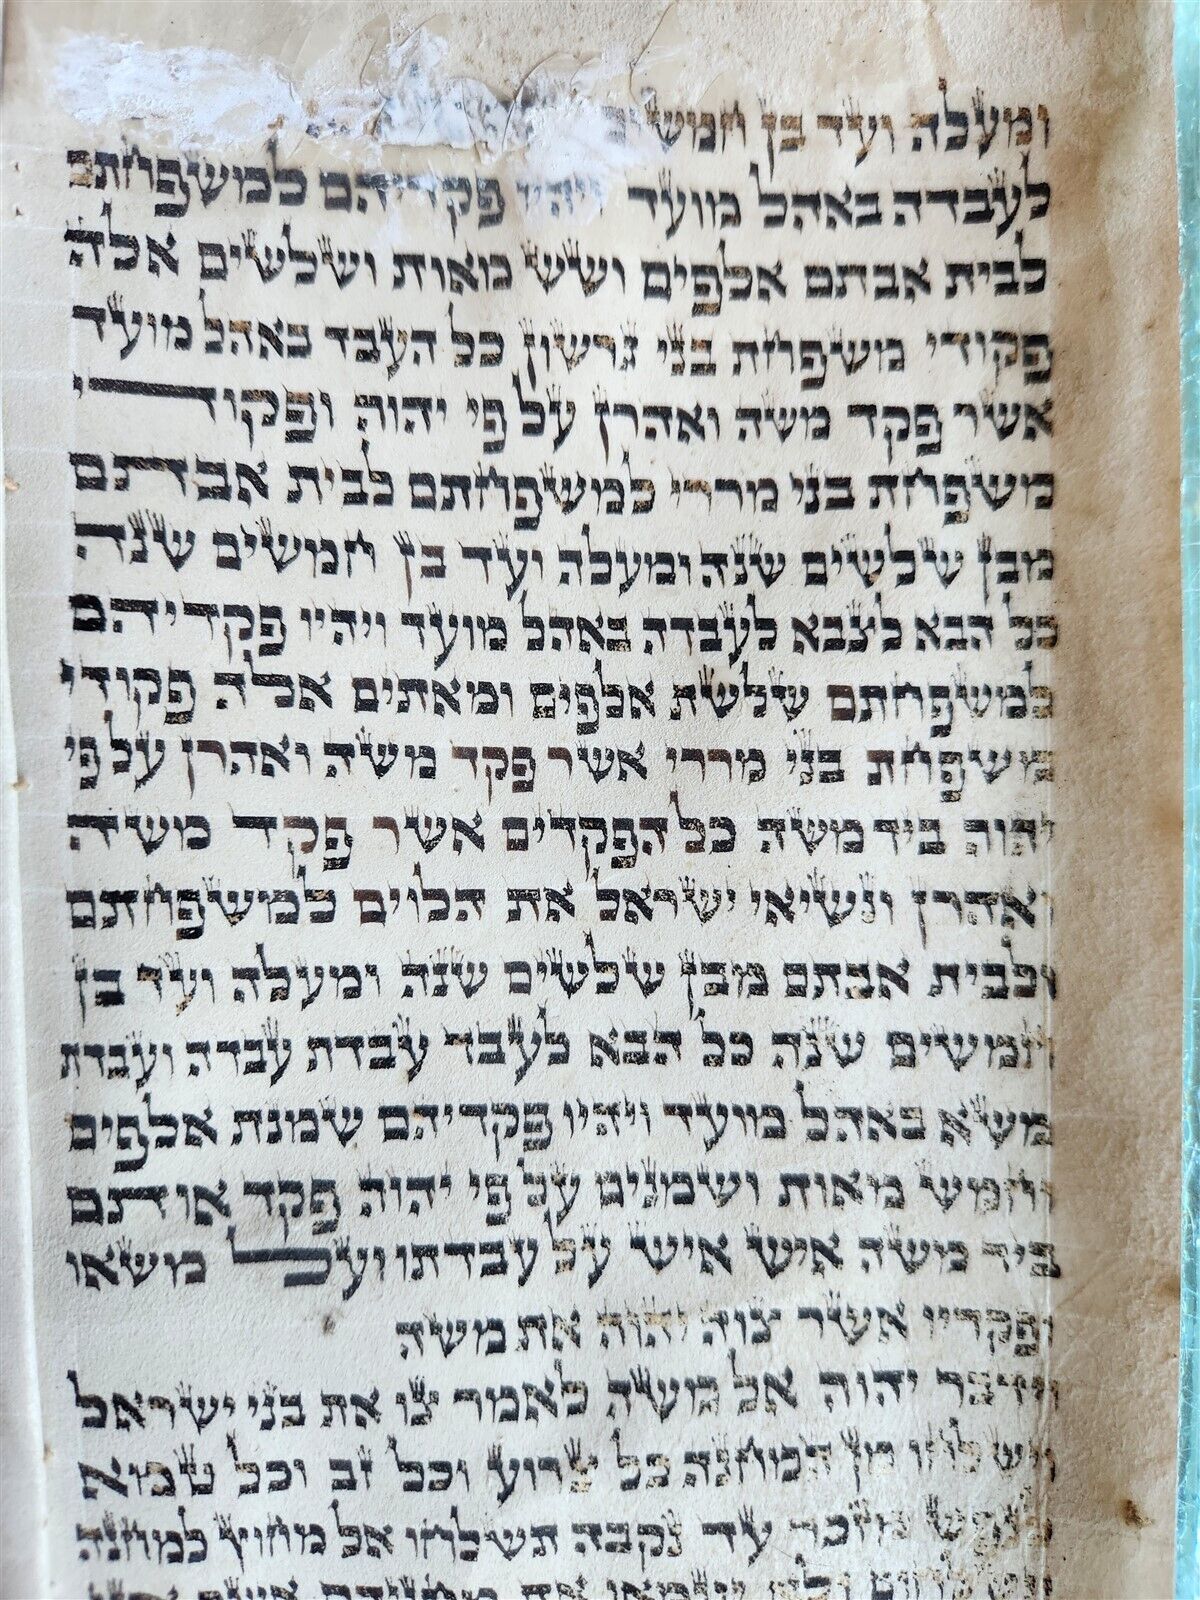 ומעלה ועד בן חמשים
לעבדה באהל מועד ויהיו פקדיהם למשפחתם
לבית אבתם אלפים ושש מאות ושלשים אלה
פקודי משפחת בני גרשון כל העבד באהל מועד
אשר פקד משה ואהרן על פי יהוה ופקודי
משפחת בני מררי למשפחתם לבית אבתם
מבן שלשים שנה ומעלה ועד בן חמשים שנה
כל הבא לצבא לעבדה באהל מועד ויהיו פקדיהם
למשפחתם שלשת אלפים ומאתים אלה פקודי
משפחת בני מררי אשר פקד משה ואהרן על פי
יהוה ביד משה כל הפקדים אשר פקד משה
ואהרן ונשיאי ישראל את הלוים למשפחתם
ולבית אבתם מבן שלשים שנה ומעלה ועד בן
חמשים שנה כל הבא לעבד עבדת עבדה ועבדת
משא באהל מועד ויהיו פקדיהם שמנת אלפים
וחמש מאות ושמנים על פי יהוה פקד אותם
ביד משה איש איש על עבדתו ועל משאו
ופקדיו אשר צוה יהוה את משה
וידבר יהוה אל משה לאמר צו את בני ישראל
וישלחו מן המחנה כל צרוע וכל זב וכל טמא
לנפש מזכר עד נקבה תשלחו אל מחוץ למחנה
תשלחום ולא יטמאו את מחניהם אשר אני